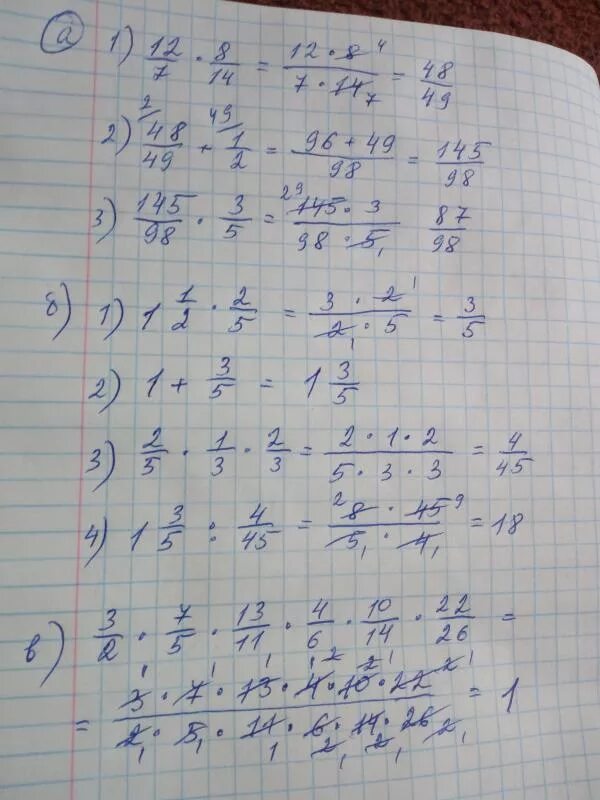 а 1) 12/7 · 8/14 = 12 · 8 4/7 · 14 7 = 48/49
2) 2/ 48/49 + 49/ 1/2 = 96 + 49/98 = 145/98
3) 145/98 · 3/5 = 29 145 · 3/98 · 5 1 87/98
б) 1) 1 1/2 · 2/5 = 3 · 2 1/2 1 · 5 = 3/5
2) 1 + 3/5 = 1 3/5
3) 2/5 · 1/3 · 2/3 = 2 · 1 · 2/5 · 3 · 3 = 4/45
4) 1 3/5 : 4/45 = 2 8 · 45 9/5 1 · 4 1 = 18
в) 3/2 · 7/5 · 13/11 · 4/6 · 10/14 · 22/26 =
= 3 1 · 7 1 · 13 1 · 4 1 2 · 10 2 1 · 22 2 1/2 1 · 5 1 · 11 1 · 6 2 1 · 14 2 1 · 26 2 1 = 1